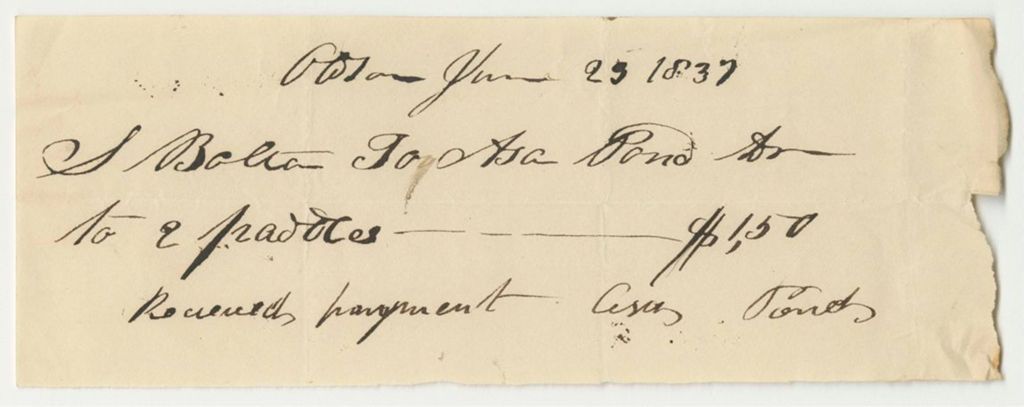 Oldtown June 25 1837
S Bolton To Asa Pond Dr
to 2 paddles $1,50
Received payment Asa Pond